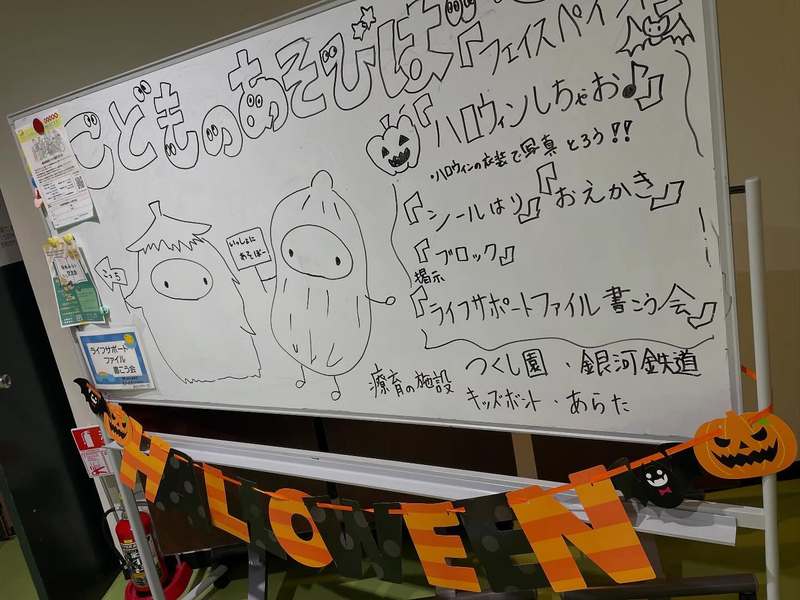 こどものあそびば
『フェイスペイント
『ハロウィンしちゃお♪』
・ハロウィンの衣装で写真とろう!!
『シールはり』『おえかき』
『ブロック』
掲示
『ライフサポートファイル書こう会』
こっち
いっしょに
あそぼー
療育の施設 つくし園・銀河鉄道
キッズポント・あらた
ライフサポート
ファイル
書こう会
HALLOWEEN